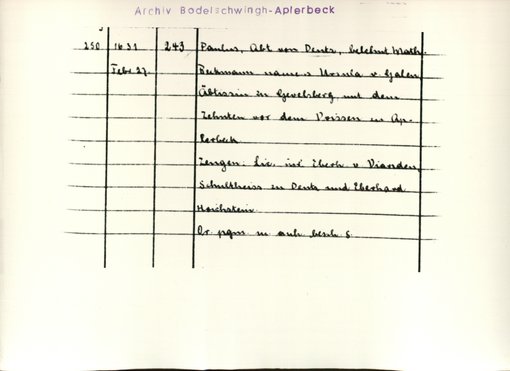 Archiv Bodelschwingh-Aplerbeck
250 1631 243 Paulus, Abt von Deutz, belehnt Math.
Febr. 27. Beckmann name. s Ursula v. Galen,
Äbtissin in Gevelsberg, mit dem
Zehnten vor dem Voissen in Ap-
lerbeck.
Zeugen: Lic. iur. Eberh. v. Vianden,
Schultheiss in Deutz und Eberhard
Hoichstein.
Or. pgm. m. anh. besch. S.